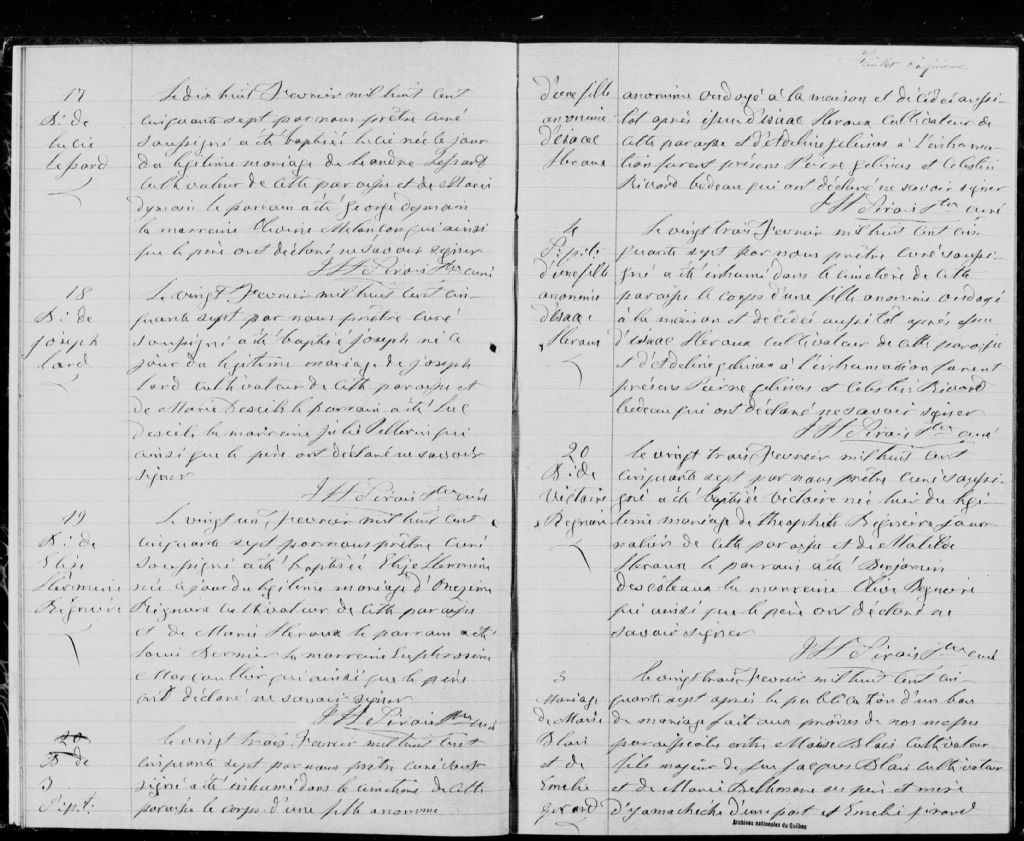 17
B: de
Lucie
Lessard
Le dix huit Fevrier mil huit cent
cinquante sept par nous prêtre curé
soussigné a été baptisé Lucie née le jour
du légitime mariage de Leandre Lessard
cultivateur de cette paroisse et de Marie
le parrain a été George
la marraine Olivine Melançon qui ainsi
que le père ont déclaré ne savoir signer
J H Sirois Ptre curé
18
B: de
Joseph
Lard
Le vingt Fevrier mil huit cent cin-
quante sept par nous prêtre curé
soussigné a été baptisé Joseph né le
jour du légitime mariage de Joseph
Lord cultivateur de cette paroisse et
de Marie Desceils le parrain a été Luc
Desceils la marraine Julie Pellerin qui
ainsi que le père ont déclaré ne savoir
signer
J H Sirois Ptre curé
19
B: de
Elize
Hermine
Regnière
Le vingt un Fevrier mil huit cent
cinquante sept par nous prêtre curé
soussigné a été baptisée Elize Hermine
née ce jour du légitime mariage d'Onezime
Rignere cultivateur de cette paroisse
et de Marie Heroux le parrain a été
Louis Bernier la marraine Euphrosine
qui ainsi que le père
ont déclaré ne savoir signer
J H Sirois Ptre curé
20
B de
3
S: pt:
Le vingt trois Fevrier mil huit cent
cinquante sept par nous prêtre curé sous-
signé a été inhumé dans le cimetiere de cette
paroisse le corps d'une fille anonime
d'une fille
anonime
d'isaac
Heroux
anonime ondoyé à la maison et décédée aussi-
tot après issu d'isaac Heroux cultivateur de
cette paroisse et d'Adeline Gelinas à l'inhuma-
tion furent présens Pierre Gelinas et Celestin
Ricard bedeau qui ont déclaré ne savoir signer
J H Sirois Ptre curé
4
S: pt:
d'une fille
anonime
d'Isaac
Heroux
Le vingt trois Fevrier mil huit cent cin-
quante sept par nous prêtre curé soussi-
gné a été inhumé dans le cimetiere de cette
paroisse le corps d'une fille anonime ondoyé
à la maison et décédée aussitôt après issu
d'isaac Heroux cultivateur de cette paroisse
et d'Adeline Gelinas à l'inhumation furent
présens Pierre Gelinas et Celestin Ricard
bedeau qui ont déclaré ne savoir signer
J H Sirois Ptre curé
20
B: de
Victoire
Regniere
Le vingt trois Fevrier mil huit cent
cinquante sept par nous prêtre curé soussi-
gné a été baptisée Victoire née hier du légi-
time mariage de Theophile Regniere jour-
nalier de cette paroisse et de Matilde
Heroux le parrain a été Benjamin
Descôteaux la marraine Olive Regniere
qui ainsi que le père ont déclaré ne
savoir signer
J H Sirois Ptre curé
3
Mariage
de Moïse
Blais
et de
Emelie
Girard
Le vingt trois Fevrier mil huit cent cin-
quante sept après la publication d'un ban
de mariage fait aux prônes de nos messes
paroissiales entre Moïse Blais cultivateur
fils majeur de feu Jacques Blais cultivateur
et de Marie Bellemare ses père et mère
d'Yamachiche d'une part et Emelie Girard
Archives nationales du Québec